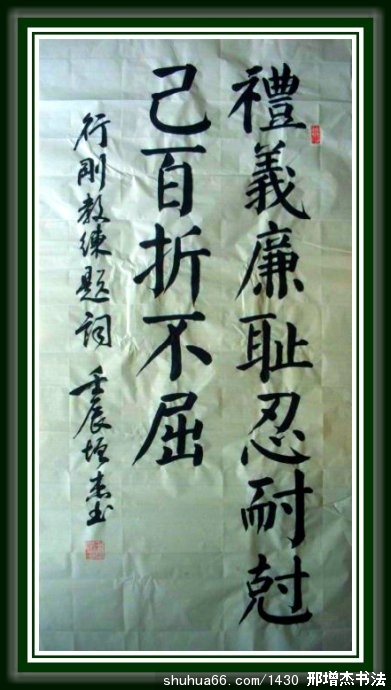 禮義廉耻忍耐尅
己百折不屈
行剛教練題詞 壬辰增杰书
shuhua66.com/1430 邢增杰书法